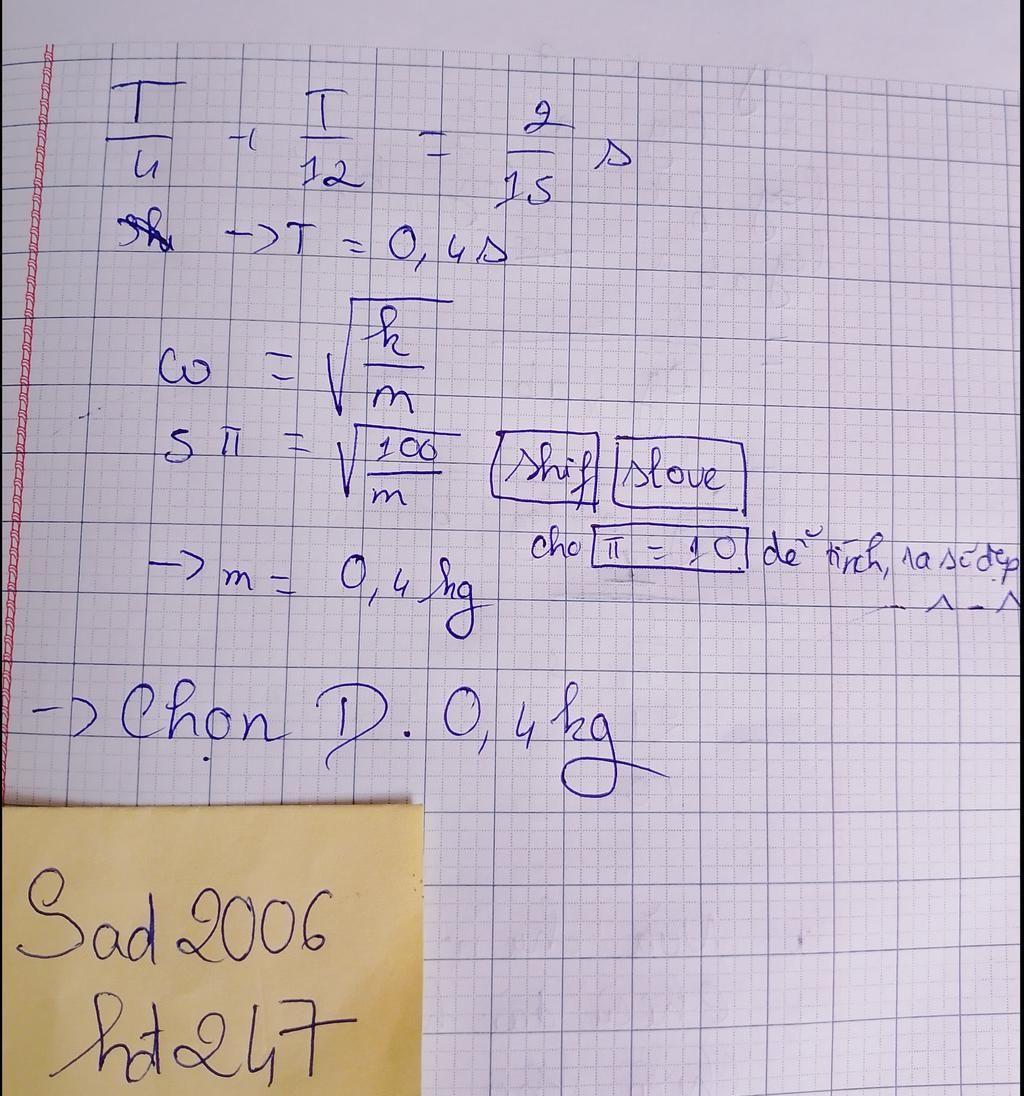 T/4 + T/12 = 2/15 s
→ T = 0,4 s
ω = √(k/m)
5π = √(100/m) Shif Slove
cho π = 10 để tính, ra số đẹp
→ m = 0,4 kg
→ Chọn D. 0,4 kg
Sad 2006
hd247